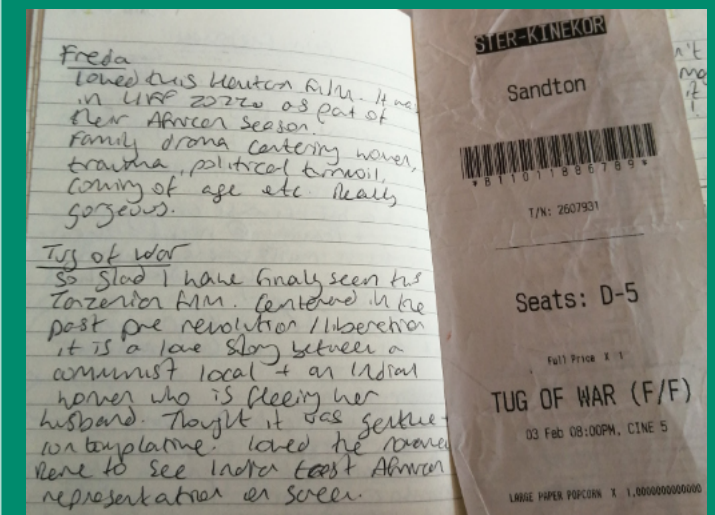 Freda
Loved this Haitian film. It was
in 2022 as part of
their African Season.
Family drama centering women,
trauma, political turmoil,
coming of age etc. Really
gorgeous.
Tug of War
So glad I have finally seen this
Tanzanian film. Centered in the
past pre revolution/liberation
it is a love story between a
communist local + an Indian
women who is fleeing her
husband. Thought it was gentle +
contemplative. Loved the romance
to see East African
representation on screen.
STER-KINEKOR
Sandton
*811011886789*
T/N: 2607931
Seats: D-5
Full Price X 1
TUG OF WAR (F/F)
03 Feb 08:00PM, CINE 5
LARGE PAPER POPCORN X 1.0000000000000